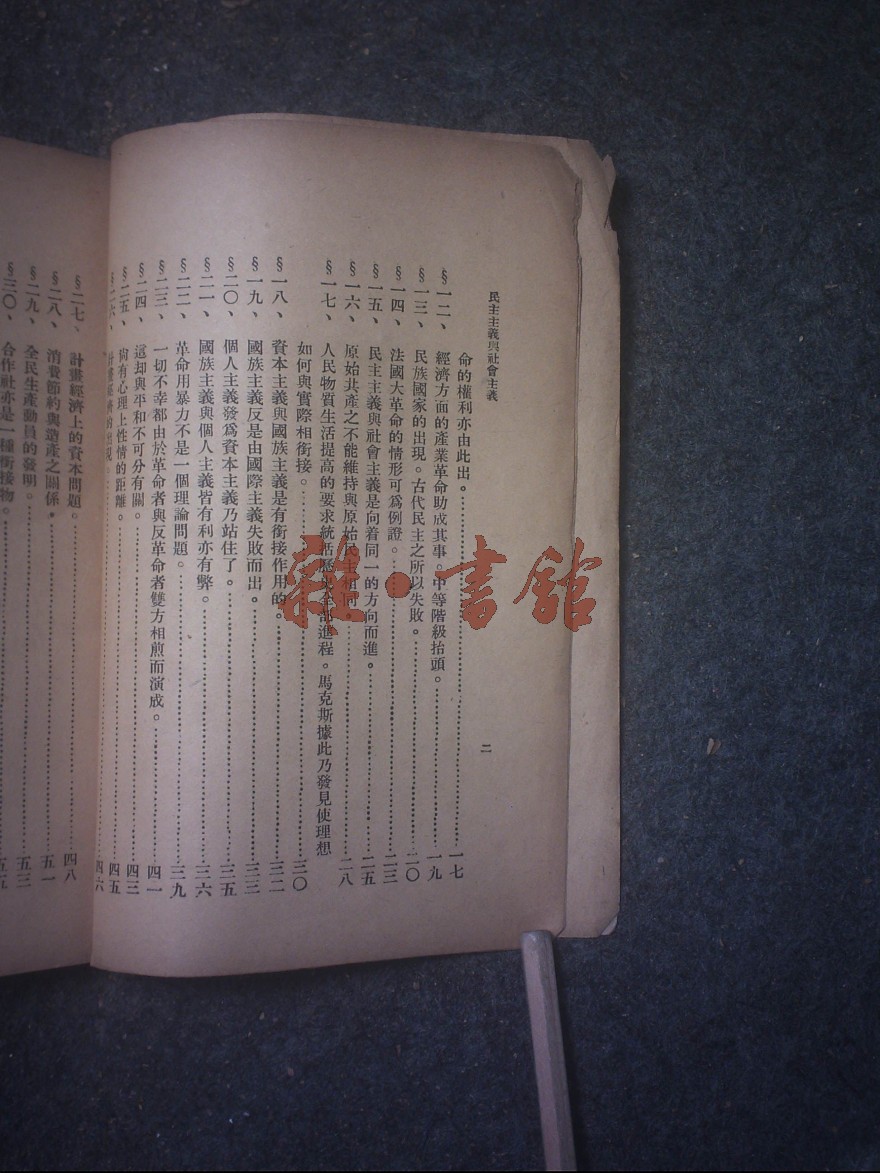 民主主義與社會主義
二
命的權利亦由此出。⋯⋯一七
§一二、經濟方面的產業革命助成其事。中等階級抬頭。⋯⋯一九
§一三、民族國家的出現。古代民主之所以失敗。⋯⋯二〇
§一四、法國大革命的情形可為例證。⋯⋯二三
§一五、民主主義與社會主義是向着同一的方向而進。⋯⋯二五
§一六、原始共產之不能維持與原始民主相同⋯⋯二八
§一七、人民物質生活提高的要求統括歷史全部進程。馬克斯據此乃發見使理想
如何與實際相銜接。⋯⋯三〇
§一八、資本主義與國族主義是有銜接作用的。⋯⋯三二
§一九、國族主義反是由國際主義失敗而出。⋯⋯三三
§二〇、個人主義發爲資本主義乃站住了。⋯⋯三五
§二一、國族主義與個人主義皆有利亦有弊。⋯⋯三六
§二二、革命用暴力不是一個理論問題。⋯⋯三九
§二三、一切不幸都由於革命者與反革命者雙方相煎而演成。⋯⋯四一
§二四、這却與平和不可分有關。⋯⋯四三
§二五、尙有心理上性情的距離。⋯⋯四五
§二六、計畫經濟的出現。⋯⋯四六
§二七、計畫經濟上的資本問題。⋯⋯四八
§二八、消費節約與造產之關係。⋯⋯五一
§二九、全民生產動員的發明。⋯⋯五三
§三〇、合作社亦是一種銜接物。⋯⋯
雜·書舘